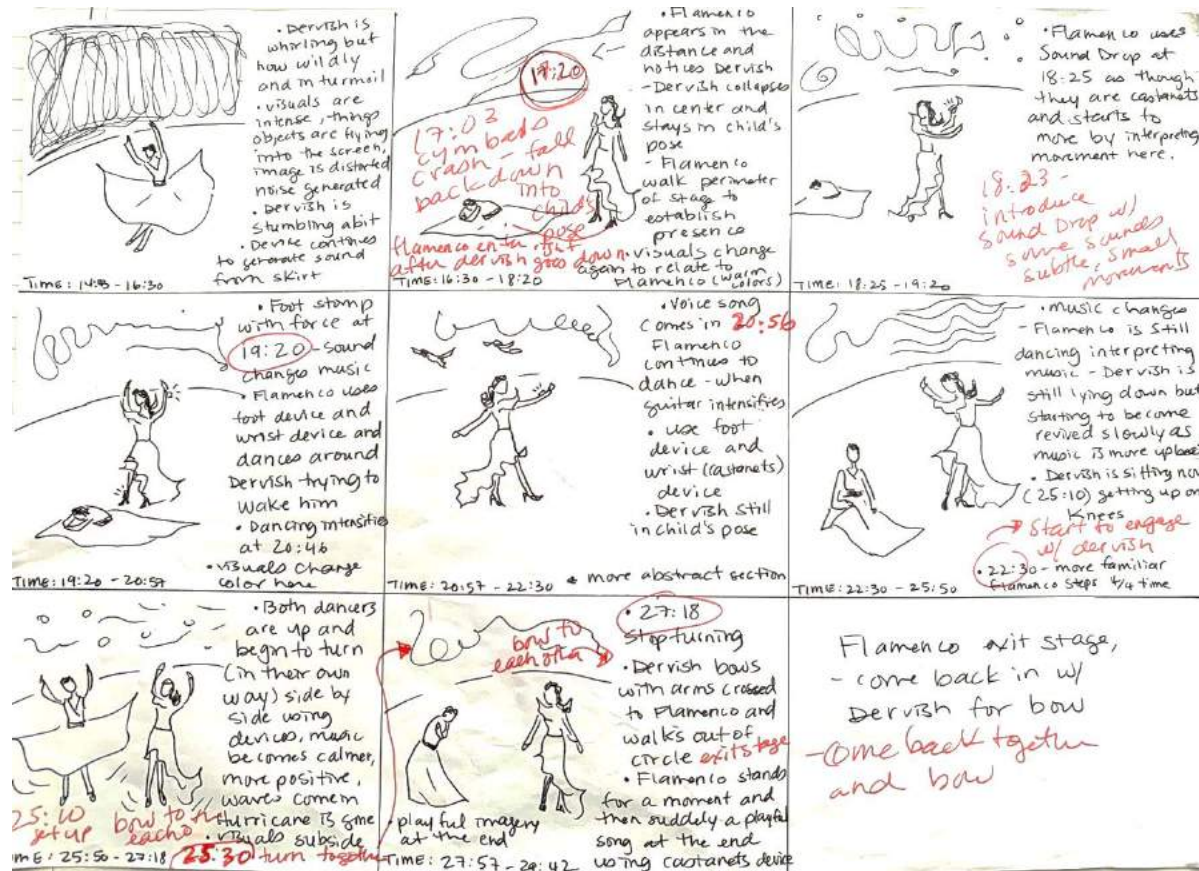 • Dervish is
whirling but
now wildly
and in turmoil
• visuals are
intense, things
objects are flying
into the screen,
image is distorted
noise generated
• Dervish is
stumbling a bit
• Device continues
to generate sound
from skirt
- 16:30
• Flamenco
appears in the
distance and
notices Dervish
- Dervish collapses
in center and
stays in child's
pose
- Flamenco
walk perimeter
of stage to
establish
presence
• visuals change
again to relate to
Flamenco (warm
colors)
17:20
17:03
cymbals
crash - fall
back down
into
child's
pose
flamenco enter right
after dervish goes down
TIME: 16:30 - 18:20
• Flamenco uses
Sound Drop at
18:25 as though
they are castanets
and starts to
move by interpreting
movement here.
18:23 -
introduce
Sound Drop w/
some sounds
subtle, small
movements
TIME: 18:25 - 19:20
• Foot stomp
with force at
19:20 - sound
changes music
• Flamenco uses
foot device and
wrist device and
dances around
Dervish trying to
wake him
• Dancing intensifies
at 20:46
• visuals change
color here
TIME: 19:20 - 20:57
• Voice song
comes in 20:56
Flamenco
continues to
dance - when
guitar intensifies
• use foot
device and
wrist (castanets)
device
• Dervish still
in child's pose
* more abstract section
TIME: 20:57 - 22:30
• music changes
- Flamenco is still
dancing interpreting
music - Dervish is
still lying down but
starting to become
revived slowly as
music is more upbeat
• Dervish is sitting now
(25:10) getting up on
knees
Start to engage
w/ dervish
• 22:30 - more familiar
flamenco steps 4/4 time
TIME: 22:30 - 25:50
• Both dancers
are up and
begin to turn
(in their own
way) side by
side using
devices, music
becomes calmer,
more positive,
waves come in
Hurricane is gone
• visuals subside
25:10
get up
bow to
each
25:30 turn together
ME: 25:50 - 27:18
bow to
each other
• 27:18
stop turning
• Dervish bows
with arms crossed
to Flamenco and
walks out of
circle exit stage
• Flamenco stands
for a moment and
then suddely a playful
song at the end
using castanets device
• playful imagery
at the end
TIME: 27:57 - 29:42
Flamenco exit stage,
- come back in w/
Dervish for bow
- come back together
and bow